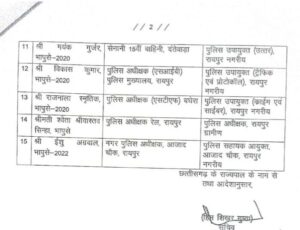 // 2 //
11 श्री मयंक गुर्जर, सेनानी 16वीं वाहिनी, दंतेवाड़ा पुलिस उपायुक्त (उत्तर),
भापुसे-2020 रायपुर नगरीय
12 श्री विकास कुमार, पुलिस अधीक्षक (एसआईबी) पुलिस उपायुक्त (ट्रैफिक
भापुसे-2020 पुलिस मुख्यालय, रायपुर एवं प्रोटोकॉल), रायपुर
नगरीय
13 श्री राजनाला स्मृतिक, पुलिस अधीक्षक (एसटीएफ) बघेरा पुलिस उपायुक्त (क्राईम एवं
भापुसे-2020 साईबर), रायपुर नगरीय
14 श्रीमती श्वेता श्रीवास्तव पुलिस अधीक्षक रेल, रायपुर पुलिस अधीक्षक, रायपुर
सिन्हा, भापुसे ग्रामीण
15 श्री ईशु अग्रवाल, नगर पुलिस अधीक्षक, आजाद पुलिस सहायक आयुक्त,
भापुसे-2022 चौक, रायपुर आजाद चौक, रायपुर
नगरीय
छत्तीसगढ़ के राज्यपाल के नाम से
तथा आदेशानुसार,
शिखर गुप्ता)
सचिव